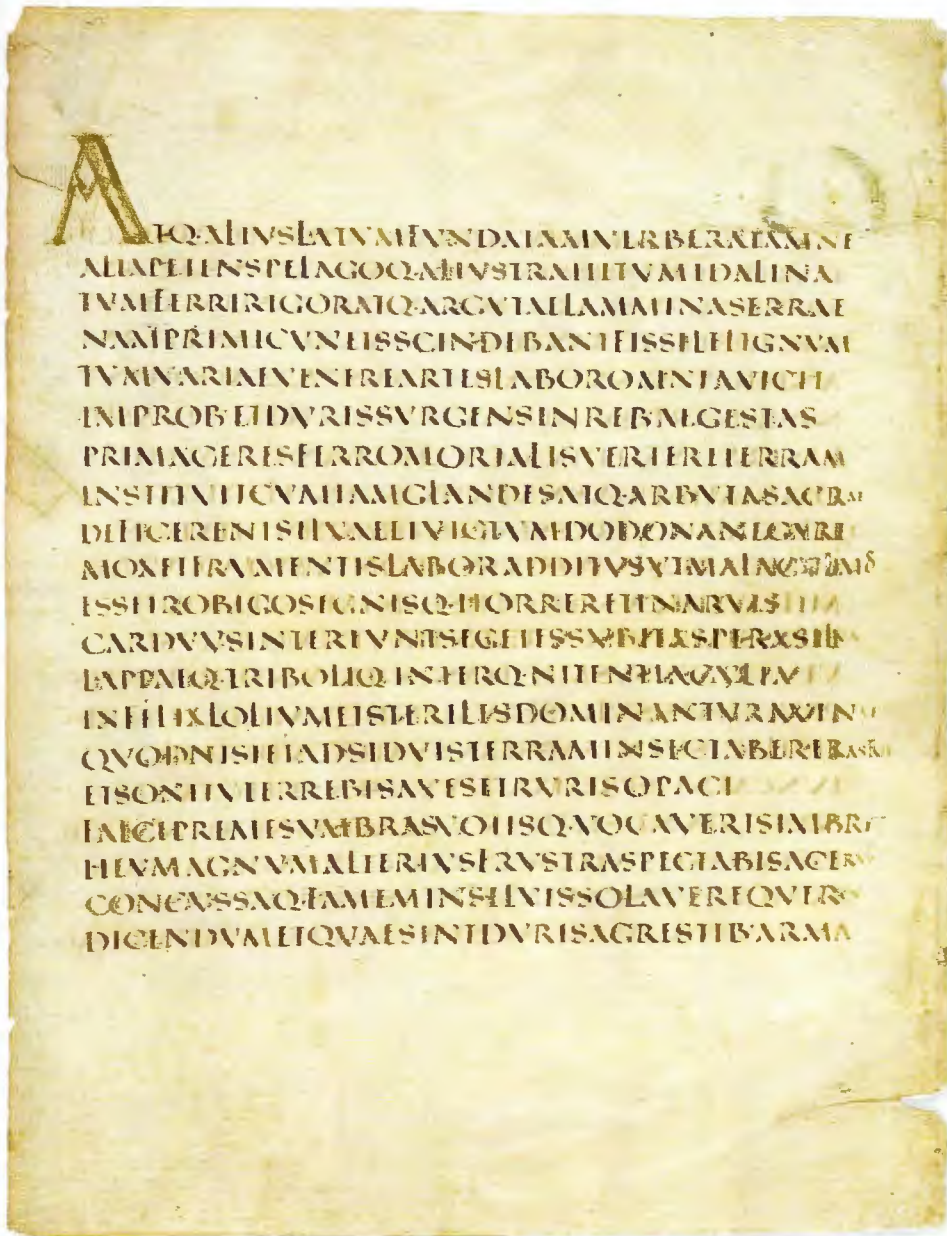 ATQ·ALIVSLATVMFVNDAIAMVERBERATAMNE
ALTAPETENSPELAGOQ·ALIVSTRAHITVMIDALINA
TVMFERRIRIGORATQ·ARGVTAELAMMINASERRAE
NAMPRIMICVNEISSCINDEBANTFISSILELIGNVM
TVMVARIAEVENEREARTESLABOROMNIAVICIT
IMPROB·ETDVRISSVRGENSINREB·AEGESTAS
PRIMACERESFERROMORTALISVERTERETERRAM
INSTITVITCVMIAMGLANDESATQ·ARBVTASACRAE
DEFICERENTSILVAEETVICTVMDODONANEGARET
MOXETFRVMENTISLABORADDITVSVTMALACVLMOS
ESSETROBIGOSEGNISQ·HORRERETINARVIS
CARDVVSINTEREVNTSEGETESSVBITASPERASIL
LAPPAEQ·TRIBOLIQ·INTERQ·NITENTIACVLTA
INFELIXLOLIVMETSTERILESDOMINANTVRAVEN
QVODNISIETADSIDVISTERRAMINSECTABERERASR
ETSONITVTERREBISAVESETRVRISOPACI
FALCEPREMESVMBRASVOTISQ·VOCAVERISIMBRE
HEVMAGNVMALTERIVSFRVSTRASPECTABISACERV
CONCVSSAQ·FAMEMINSILVISSOLAVEREQVERC
DICENDVMETQVAESINTDVRISAGRESTIB·ARMA